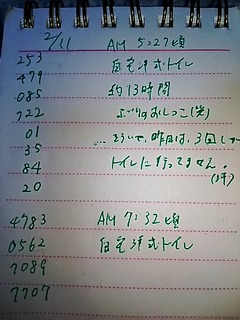 2/11 AM 5:27頃
253 自宅洋式トイレ
479
085 約13時間
722 ぶりのおしっこ(笑)
01 …そういや、昨日は、3回しか
35
84 トイレに行ってません。
20 (汗)
4783 AM 7:32頃
0562 自宅洋式トイレ
7089
7707